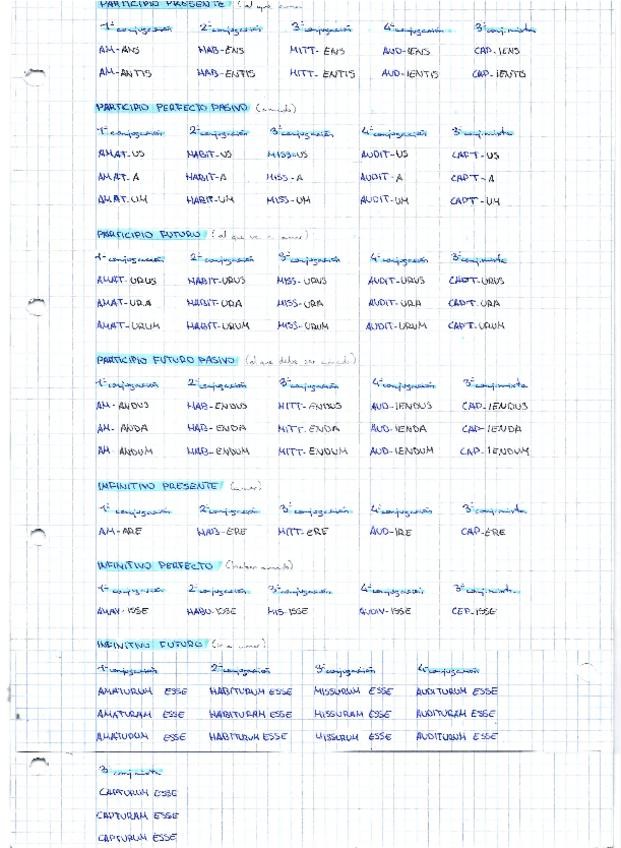 PARTICIPIO PRESENTE (el que ama)
1ª conjugación 2ª conjugación 3ª conjugación 4ª conjugación 3ª conj. mixta
AM-ANS HAB-ENS MITT-ENS AUD-IENS CAP-IENS
AM-ANTIS HAB-ENTIS MITT-ENTIS AUD-IENTIS CAP-IENTIS
PARTICIPIO PERFECTO PASIVO (amado)
1ª conjugación 2ª conjugación 3ª conjugación 4ª conjugación 3ª conj. mixta
AMAT-US HABIT-US MISS-US AUDIT-US CAPT-US
AMAT-A HABIT-A MISS-A AUDIT-A CAPT-A
AMAT-UM HABIT-UM MISS-UM AUDIT-UM CAPT-UM
PARTICIPIO FUTURO (el que va a amar)
1ª conjugación 2ª conjugación 3ª conjugación 4ª conjugación 3ª conj. mixta
AMAT-URUS HABIT-URUS MISS-URUS AUDIT-URUS CAPT-URUS
AMAT-URA HABIT-URA MISS-URA AUDIT-URA CAPT-URA
AMAT-URUM HABIT-URUM MISS-URUM AUDIT-URUM CAPT-URUM
PARTICIPIO FUTURO PASIVO (el que debe ser amado)
1ª conjugación 2ª conjugación 3ª conjugación 4ª conjugación 3ª conj. mixta
AM-ANDUS HAB-ENDUS MITT-ENDUS AUD-IENDUS CAP-IENDUS
AM-ANDA HAB-ENDA MITT-ENDA AUD-IENDA CAP-IENDA
AM-ANDUM HAB-ENDUM MITT-ENDUM AUD-IENDUM CAP-IENDUM
INFINITIVO PRESENTE (amar)
1ª conjugación 2ª conjugación 3ª conjugación 4ª conjugación 3ª conj. mixta
AM-ARE HAB-ERE MITT-ERE AUD-IRE CAP-ERE
INFINITIVO PERFECTO (haber amado)
1ª conjugación 2ª conjugación 3ª conjugación 4ª conjugación 3ª conj. mixta
AMAV-ISSE HABU-ISSE MIS-ISSE AUDIV-ISSE CEP-ISSE
INFINITIVO FUTURO (ir a amar)
1ª conjugación 2ª conjugación 3ª conjugación 4ª conjugación
AMATURUM ESSE HABITURUM ESSE MISSURUM ESSE AUDITURUM ESSE
AMATURAM ESSE HABITURAM ESSE MISSURAM ESSE AUDITURAM ESSE
AMATURUM ESSE HABITURUM ESSE MISSURUM ESSE AUDITURUM ESSE
3ª conj. mixta
CAPTURUM ESSE
CAPTURAM ESSE
CAPTURUM ESSE